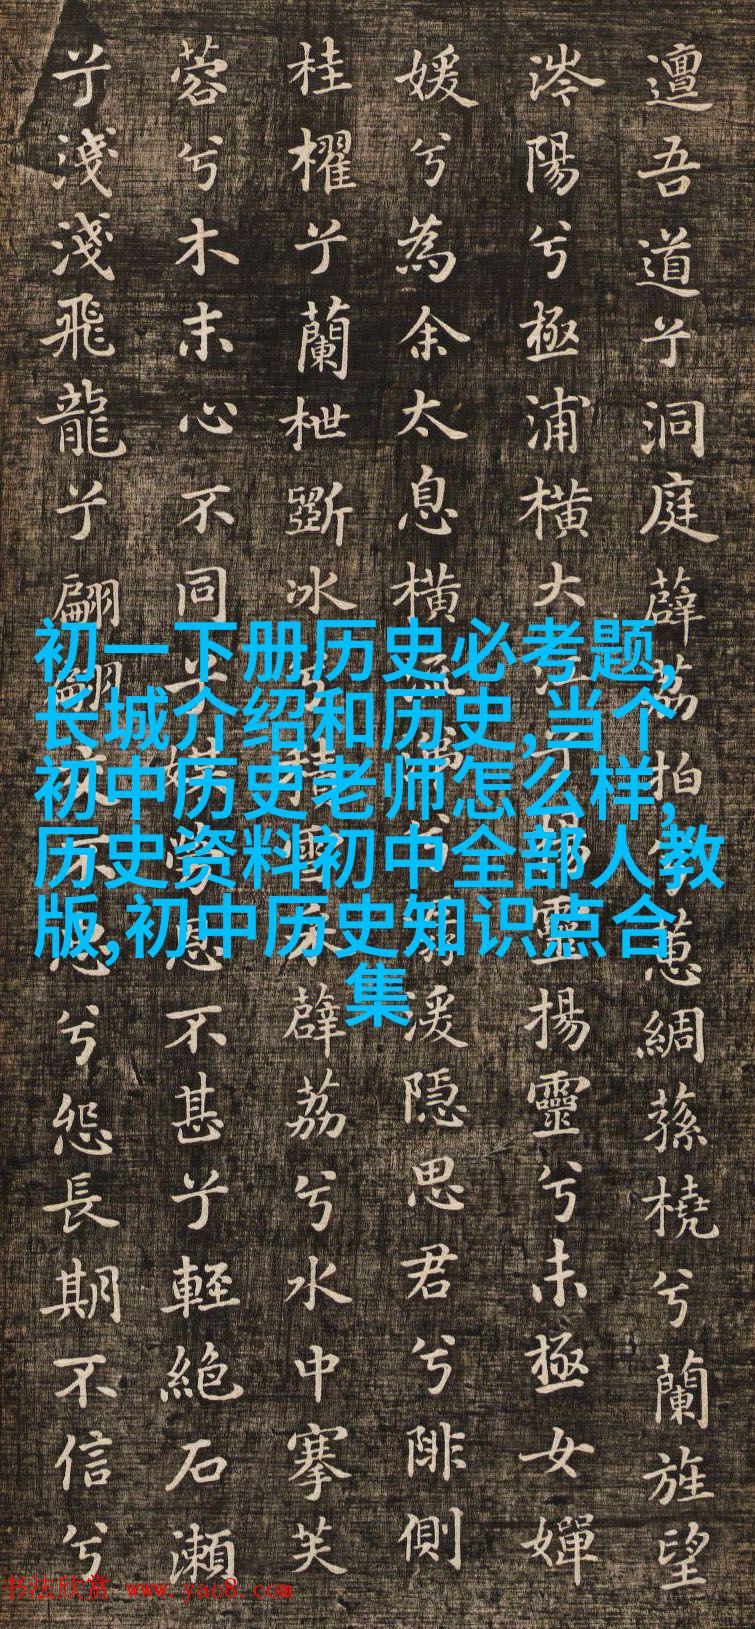 邅吾道兮洞庭薜荔拍兮蕙綢蓀橈兮蘭旌望
涔陽兮極浦橫大江兮揚靈揚靈兮未極女嬋
媛兮為余太息橫流涕兮潺湲隱思君兮陫側
桂櫂兮蘭枻斲冰兮積雪采薜荔兮水中搴芙
蓉兮木末心不同兮媒勞恩不甚兮輕絕石瀨
兮淺淺飛龍兮翩翩交不忠兮怨長期不信兮
初一下册历史必考题,
长城介绍和历史,当个
初中历史老师怎么样,
历史资料初中全部人教
版,初中历史知识点合
集
书法欣赏 www.yac8.com